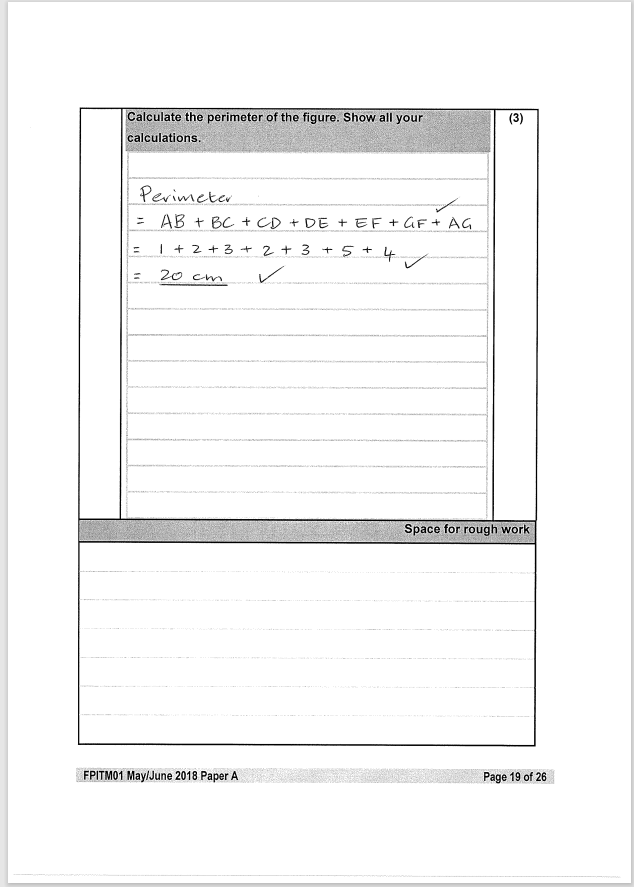 Calculate the perimeter of the figure. Show all your
calculations.
(3)
Perimeter
= AB + BC + CD + DE + EF + GF + AG
= 1 + 2 + 3 + 2 + 3 + 5 + 4
= 20 cm
Space for rough work
FPITM01 May/June 2018 Paper A
Page 19 of 26